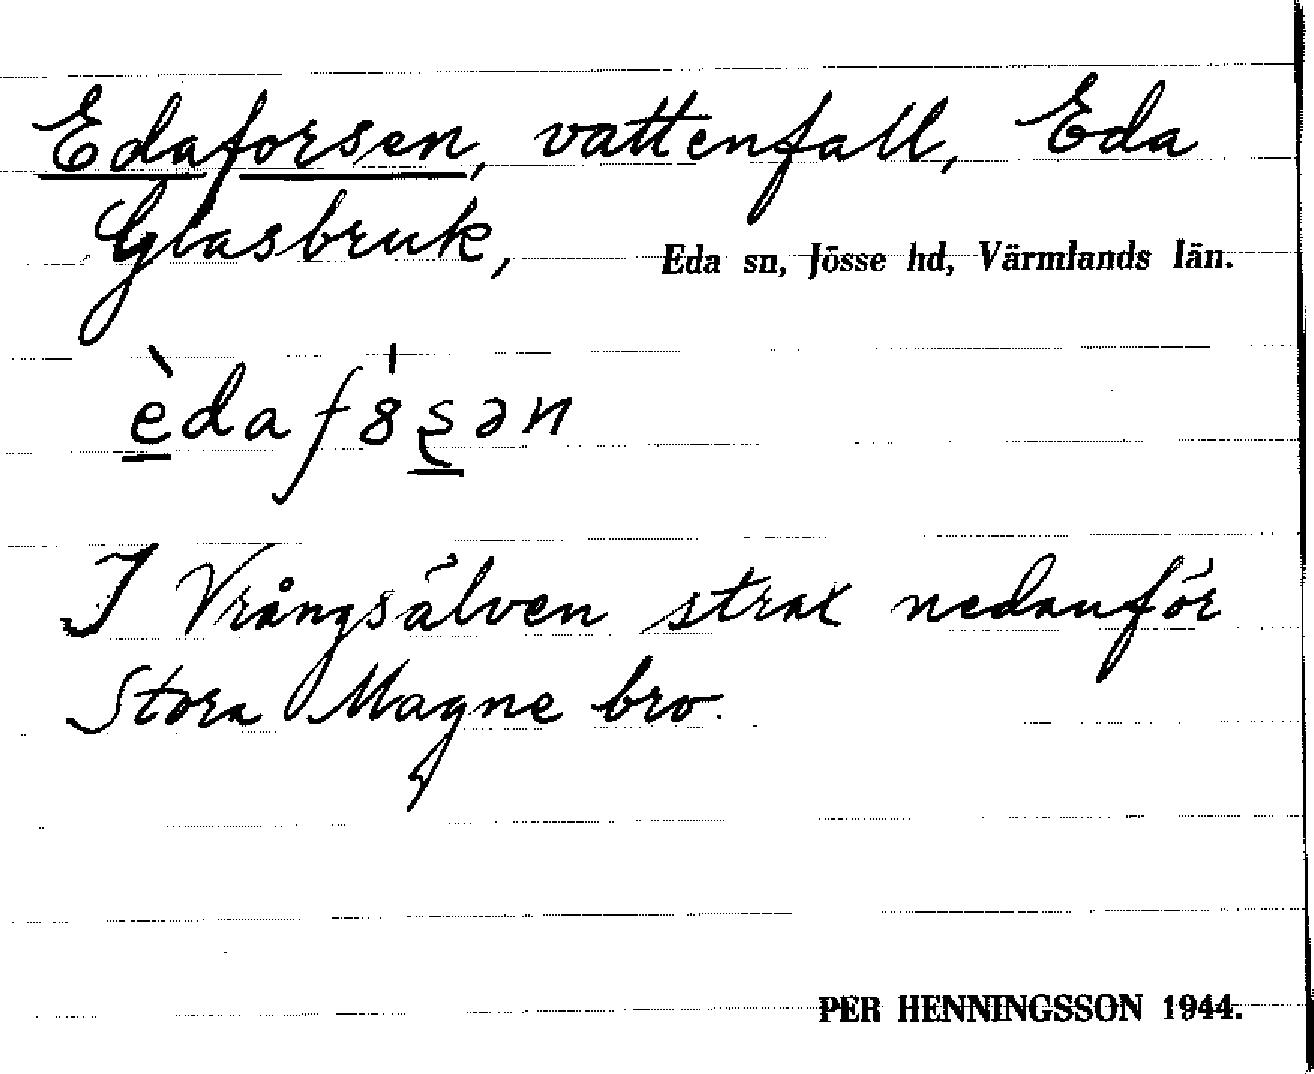 Edaforsen, vattenfall, Eda
Glasbruk, Eda sn, Jösse hd, Värmlands län.
èdafȣ̍ʂən
I Vrångsälven strax nedanför
Stora Magne bro.
PER HENNINGSSON 1944.